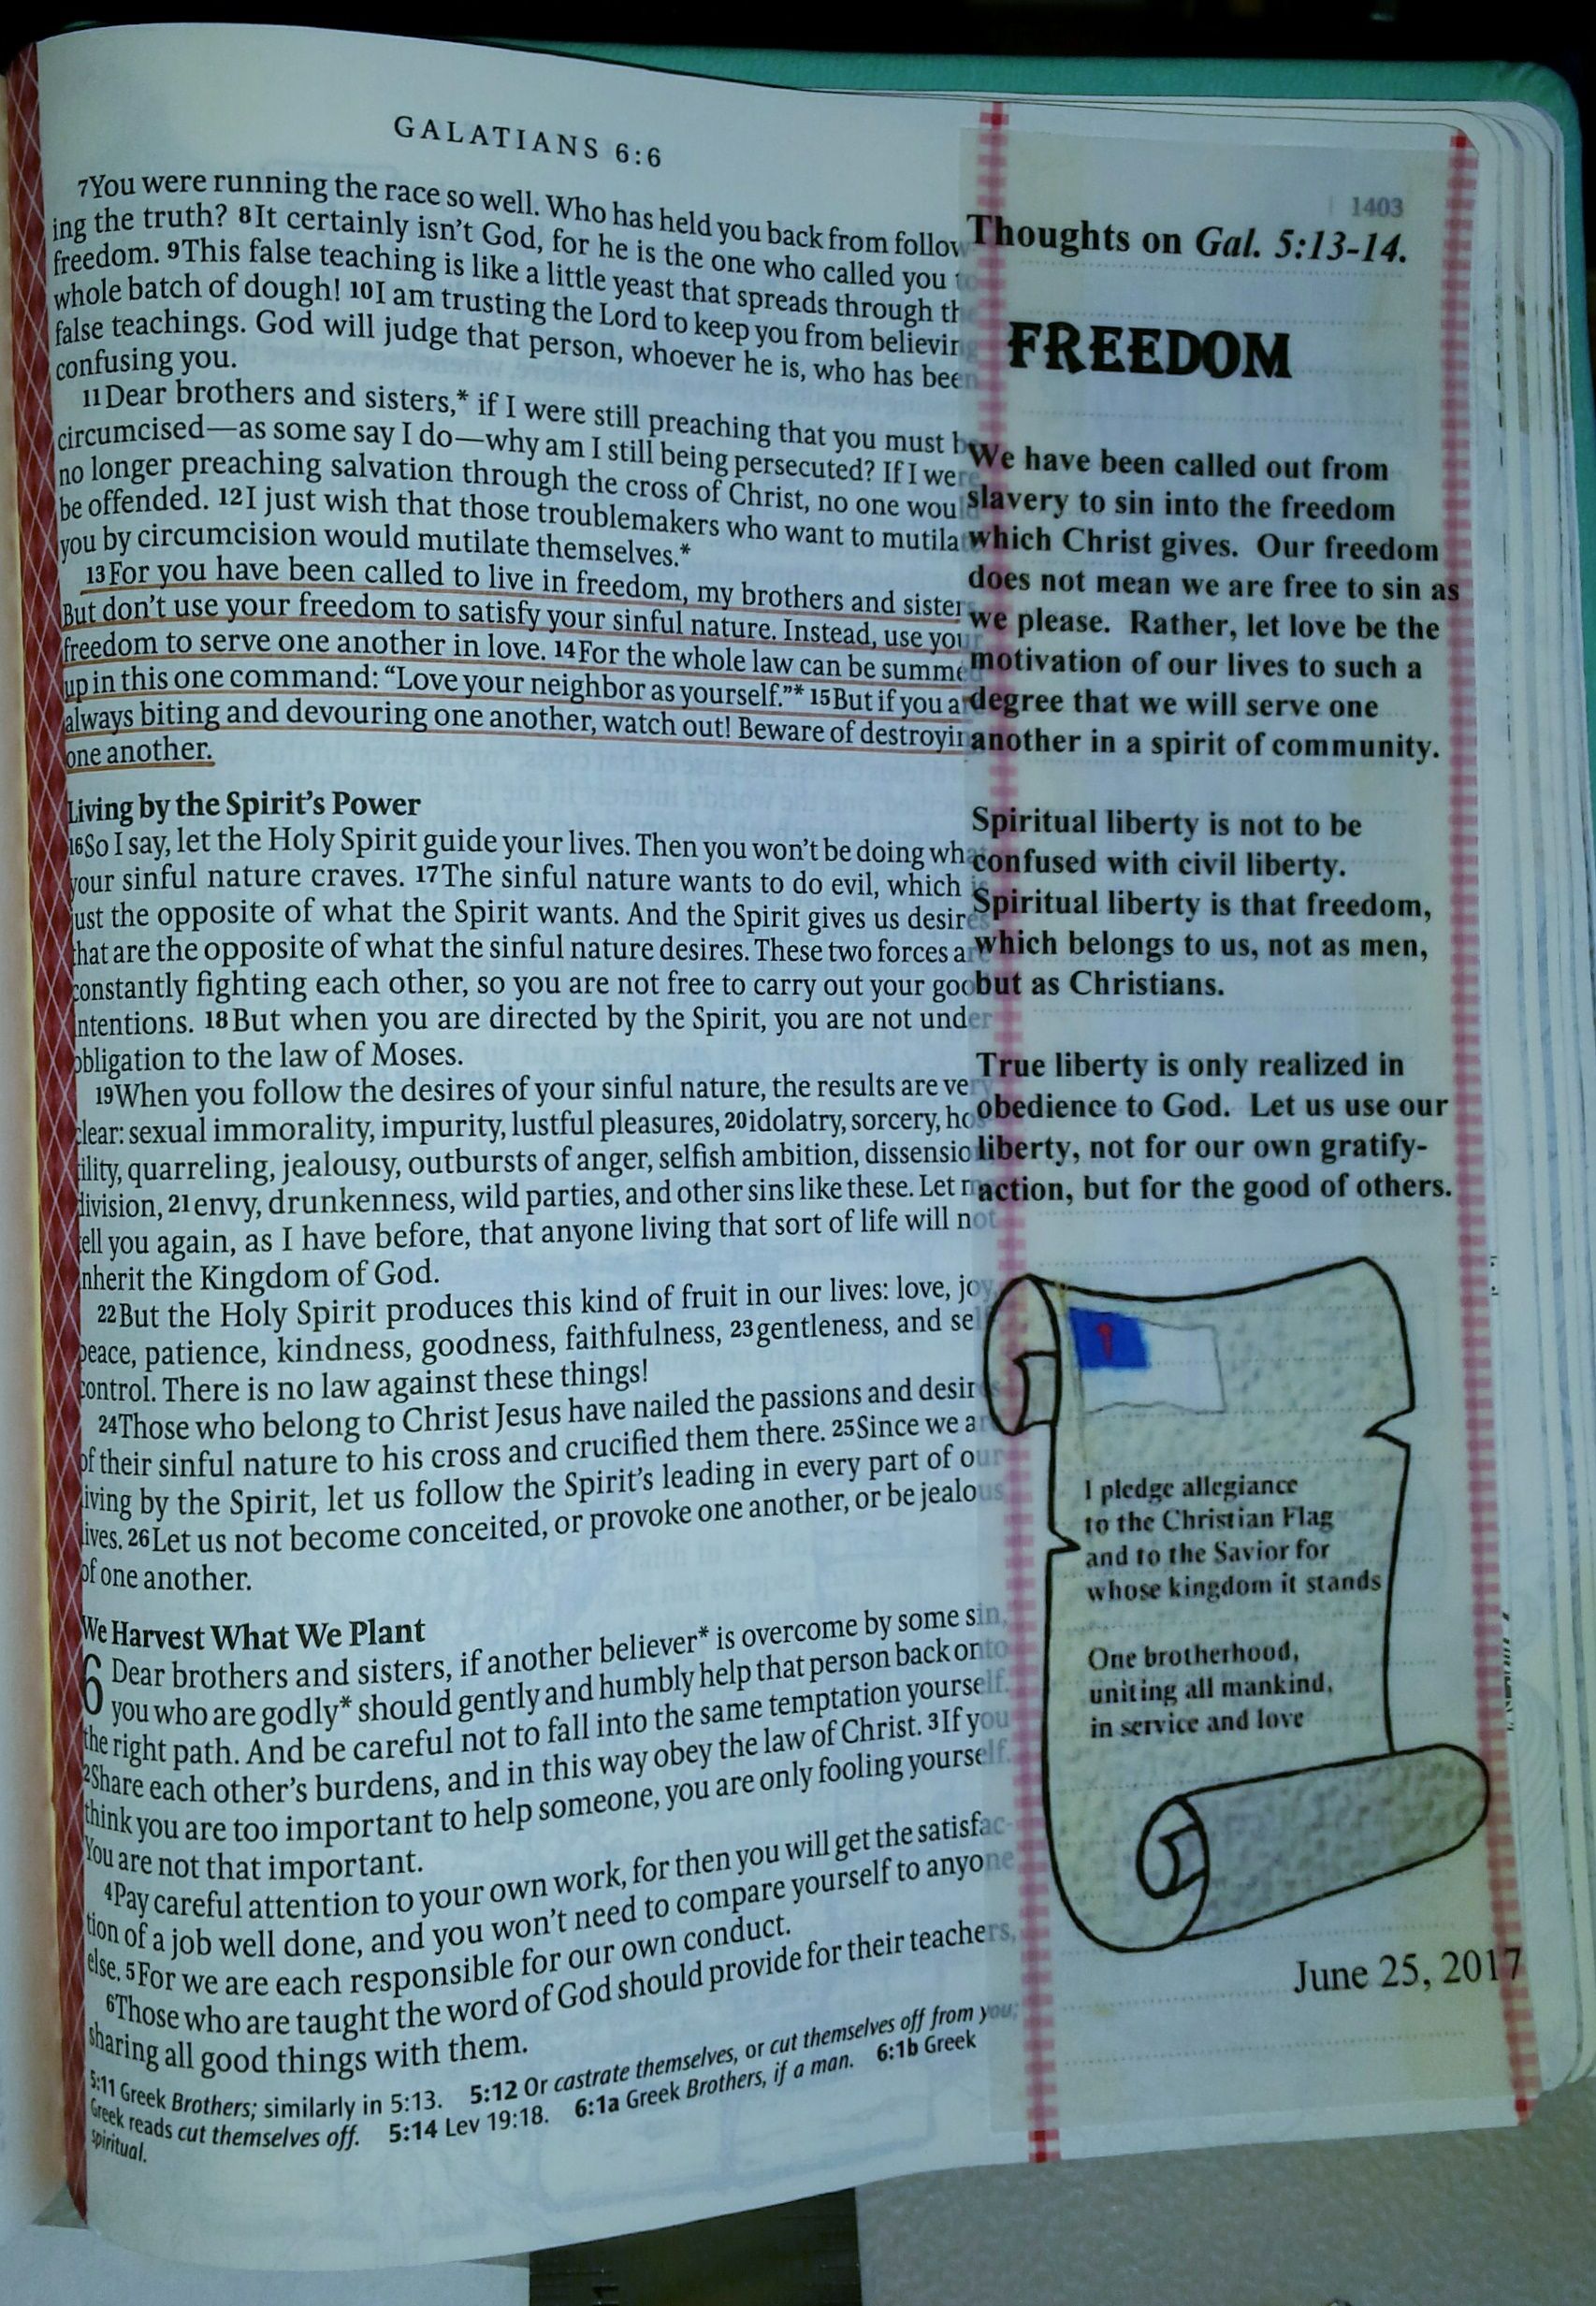 GALATIANS 6:6
7You were running the race so well. Who has held you back from follow
ing the truth? 8It certainly isn't God, for he is the one who called you to
freedom. 9This false teaching is like a little yeast that spreads through the
whole batch of dough! 10I am trusting the Lord to keep you from believing
false teachings. God will judge that person, whoever he is, who has been
confusing you.
11Dear brothers and sisters,* if I were still preaching that you must be
circumcised—as some say I do—why am I still being persecuted? If I were
no longer preaching salvation through the cross of Christ, no one woul
be offended. 12I just wish that those troublemakers who want to mutilat
you by circumcision would mutilate themselves.*
13For you have been called to live in freedom, my brothers and sister
But don't use your freedom to satisfy your sinful nature. Instead, use your
freedom to serve one another in love. 14For the whole law can be summed
up in this one command: “Love your neighbor as yourself.”* 15But if you a
always biting and devouring one another, watch out! Beware of destroyin
one another.
Living by the Spirit's Power
16So I say, let the Holy Spirit guide your lives. Then you won't be doing wha
your sinful nature craves. 17The sinful nature wants to do evil, which is
just the opposite of what the Spirit wants. And the Spirit gives us desires
that are the opposite of what the sinful nature desires. These two forces ar
constantly fighting each other, so you are not free to carry out your goo
intentions. 18But when you are directed by the Spirit, you are not under
obligation to the law of Moses.
19When you follow the desires of your sinful nature, the results are very
clear: sexual immorality, impurity, lustful pleasures, 20idolatry, sorcery, hos
tility, quarreling, jealousy, outbursts of anger, selfish ambition, dissensio
division, 21envy, drunkenness, wild parties, and other sins like these. Let m
tell you again, as I have before, that anyone living that sort of life will not
inherit the Kingdom of God.
22But the Holy Spirit produces this kind of fruit in our lives: love, joy,
peace, patience, kindness, goodness, faithfulness, 23gentleness, and self
control. There is no law against these things!
24Those who belong to Christ Jesus have nailed the passions and desires
of their sinful nature to his cross and crucified them there. 25Since we ar
living by the Spirit, let us follow the Spirit's leading in every part of our
lives. 26Let us not become conceited, or provoke one another, or be jealous
of one another.
We Harvest What We Plant
6 Dear brothers and sisters, if another believer* is overcome by some sin,
you who are godly* should gently and humbly help that person back onto
the right path. And be careful not to fall into the same temptation yourself.
2Share each other's burdens, and in this way obey the law of Christ. 3If you
think you are too important to help someone, you are only fooling yourself.
You are not that important.
4Pay careful attention to your own work, for then you will get the satisfac-
tion of a job well done, and you won't need to compare yourself to anyone
else. 5For we are each responsible for our own conduct.
6Those who are taught the word of God should provide for their teachers,
sharing all good things with them.
5:11 Greek Brothers; similarly in 5:13. 5:12 Or castrate themselves, or cut themselves off from you;
Greek reads cut themselves off. 5:14 Lev 19:18. 6:1a Greek Brothers, if a man. 6:1b Greek
spiritual.
1403
Thoughts on Gal. 5:13-14.
FREEDOM
We have been called out from
slavery to sin into the freedom
which Christ gives. Our freedom
does not mean we are free to sin as
we please. Rather, let love be the
motivation of our lives to such a
degree that we will serve one
another in a spirit of community.
Spiritual liberty is not to be
confused with civil liberty.
Spiritual liberty is that freedom,
which belongs to us, not as men,
but as Christians.
True liberty is only realized in
obedience to God. Let us use our
liberty, not for our own gratify-
action, but for the good of others.
I pledge allegiance
to the Christian Flag
and to the Savior for
whose kingdom it stands
One brotherhood,
uniting all mankind,
in service and love
June 25, 2017